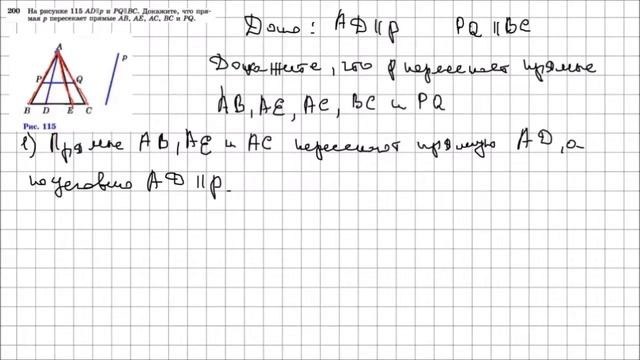 200 На рисунке 115 AD∥p и PQ∥BC. Докажите, что пря-
мая p пересекает прямые AB, AE, AC, BC и PQ.
A
p
P
Q
B
D
E
C
Рис. 115
Дано: AD∥p PQ∥BC
Докажите, что p пересекает прямые
AB, AE, AC, BC и PQ
1) Прямые AB, AE и AC пересекают прямую AD, а
по условию AD∥p.